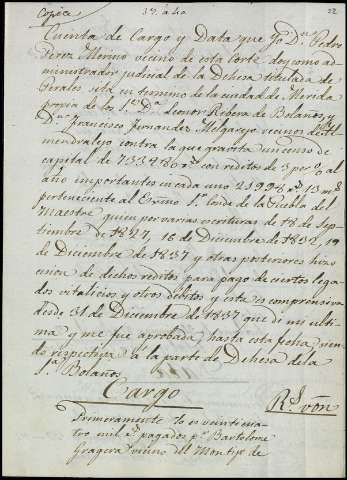 Copia
22
Cuenta de Cargo y Data que Yo Dn. Pedro
Perez Merino vecino de esta Corte doy como ad-
ministrador judicial de la Dehesa titulada de
Perales sita en termino de la ciudad de Merida
propia de los Sres. Da. Leonor Ribera de Bolaños y
Dn. Francisco Fernandez Melgarejo vecinos del Al-
mendralejo contra la que gravita un censo de
capital de 733486 rs. con reditos de 3 por % al
año importantes en cada uno 21998 rs. 13 ms.
perteneciente al Exmo. Sr. Conde de la Puebla del
Maestre quien por varias escrituras de 18 de Sep-
tiembre de 1827, 16 de Diciembre de 1832, 19
de Diciembre de 1837 y otras posteriores hizo
cesion de dichos reditos para pago de ciertos lega-
dos vitalicios y otros debitos y esta es comprensiva
desde 31 de Diciembre de 1837 que di mi ulti-
ma y me fue aprobada, hasta esta fecha sien-
do respectiva a la parte de Dehesa de la
Sra. Bolaños.
Cargo
Rs. von
Primeramente lo es veinticua-
tro mil rs. pagados pr. Bartolomé
Gragera vecino del Montijo de